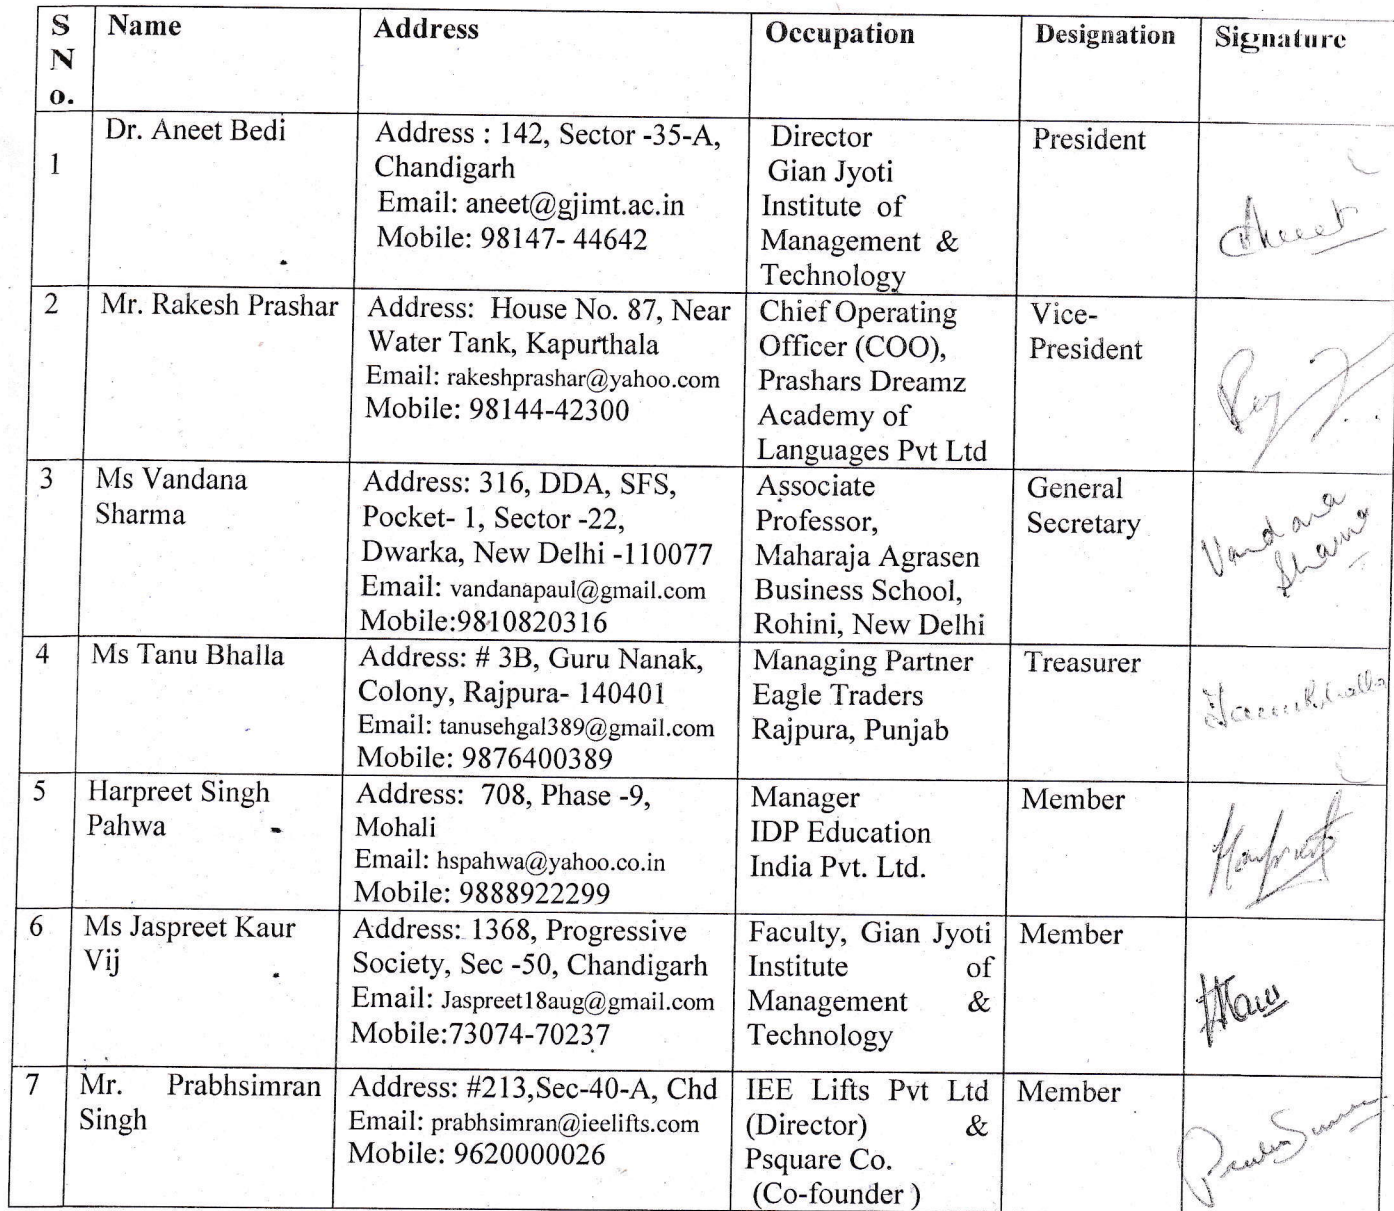 S
N
o.
Name
Address
Occupation
Designation
Signature
1
Dr. Aneet Bedi
Address : 142, Sector -35-A,
Chandigarh
Email: aneet@gjimt.ac.in
Mobile: 98147- 44642
Director
Gian Jyoti
Institute of
Management &
Technology
President
Aneet
2
Mr. Rakesh Prashar
Address: House No. 87, Near
Water Tank, Kapurthala
Email: rakeshprashar@yahoo.com
Mobile: 98144-42300
Chief Operating
Officer (COO),
Prashars Dreamz
Academy of
Languages Pvt Ltd
Vice-
President
3
Ms Vandana
Sharma
Address: 316, DDA, SFS,
Pocket- 1, Sector -22,
Dwarka, New Delhi -110077
Email: vandanapaul@gmail.com
Mobile:9810820316
Associate
Professor,
Maharaja Agrasen
Business School,
Rohini, New Delhi
General
Secretary
Vandana
Sharma
4
Ms Tanu Bhalla
Address: # 3B, Guru Nanak,
Colony, Rajpura- 140401
Email: tanusehgal389@gmail.com
Mobile: 9876400389
Managing Partner
Eagle Traders
Rajpura, Punjab
Treasurer
5
Harpreet Singh
Pahwa
Address: 708, Phase -9,
Mohali
Email: hspahwa@yahoo.co.in
Mobile: 9888922299
Manager
IDP Education
India Pvt. Ltd.
Member
Harpreet
6
Ms Jaspreet Kaur
Vij
Address: 1368, Progressive
Society, Sec -50, Chandigarh
Email: Jaspreet18aug@gmail.com
Mobile:73074-70237
Faculty, Gian Jyoti
Institute of
Management &
Technology
Member
7
Mr. Prabhsimran
Singh
Address: #213,Sec-40-A, Chd
Email: prabhsimran@ieelifts.com
Mobile: 9620000026
IEE Lifts Pvt Ltd
(Director) &
Psquare Co.
(Co-founder )
Member